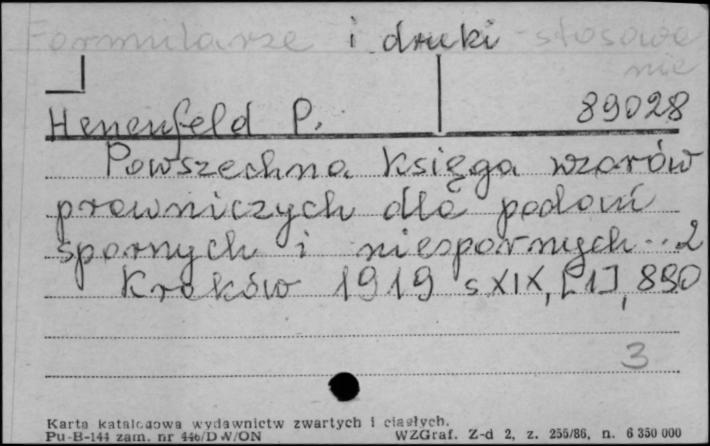 Formularze i druki - stosowa
nie
89028
Henenfeld P.
Powszechna księga wzorów
prawniczych dla podań
spornych i niespornych.. 2
Kraków 1919 s XIX, [1], 890
3
Karta katalogowa wydawnictw zwartych i ciągłych.
Pu-B-144 zam. nr 446/DW/ON WZGraf. Z-d 2, z. 255/86, n. 6 350 000